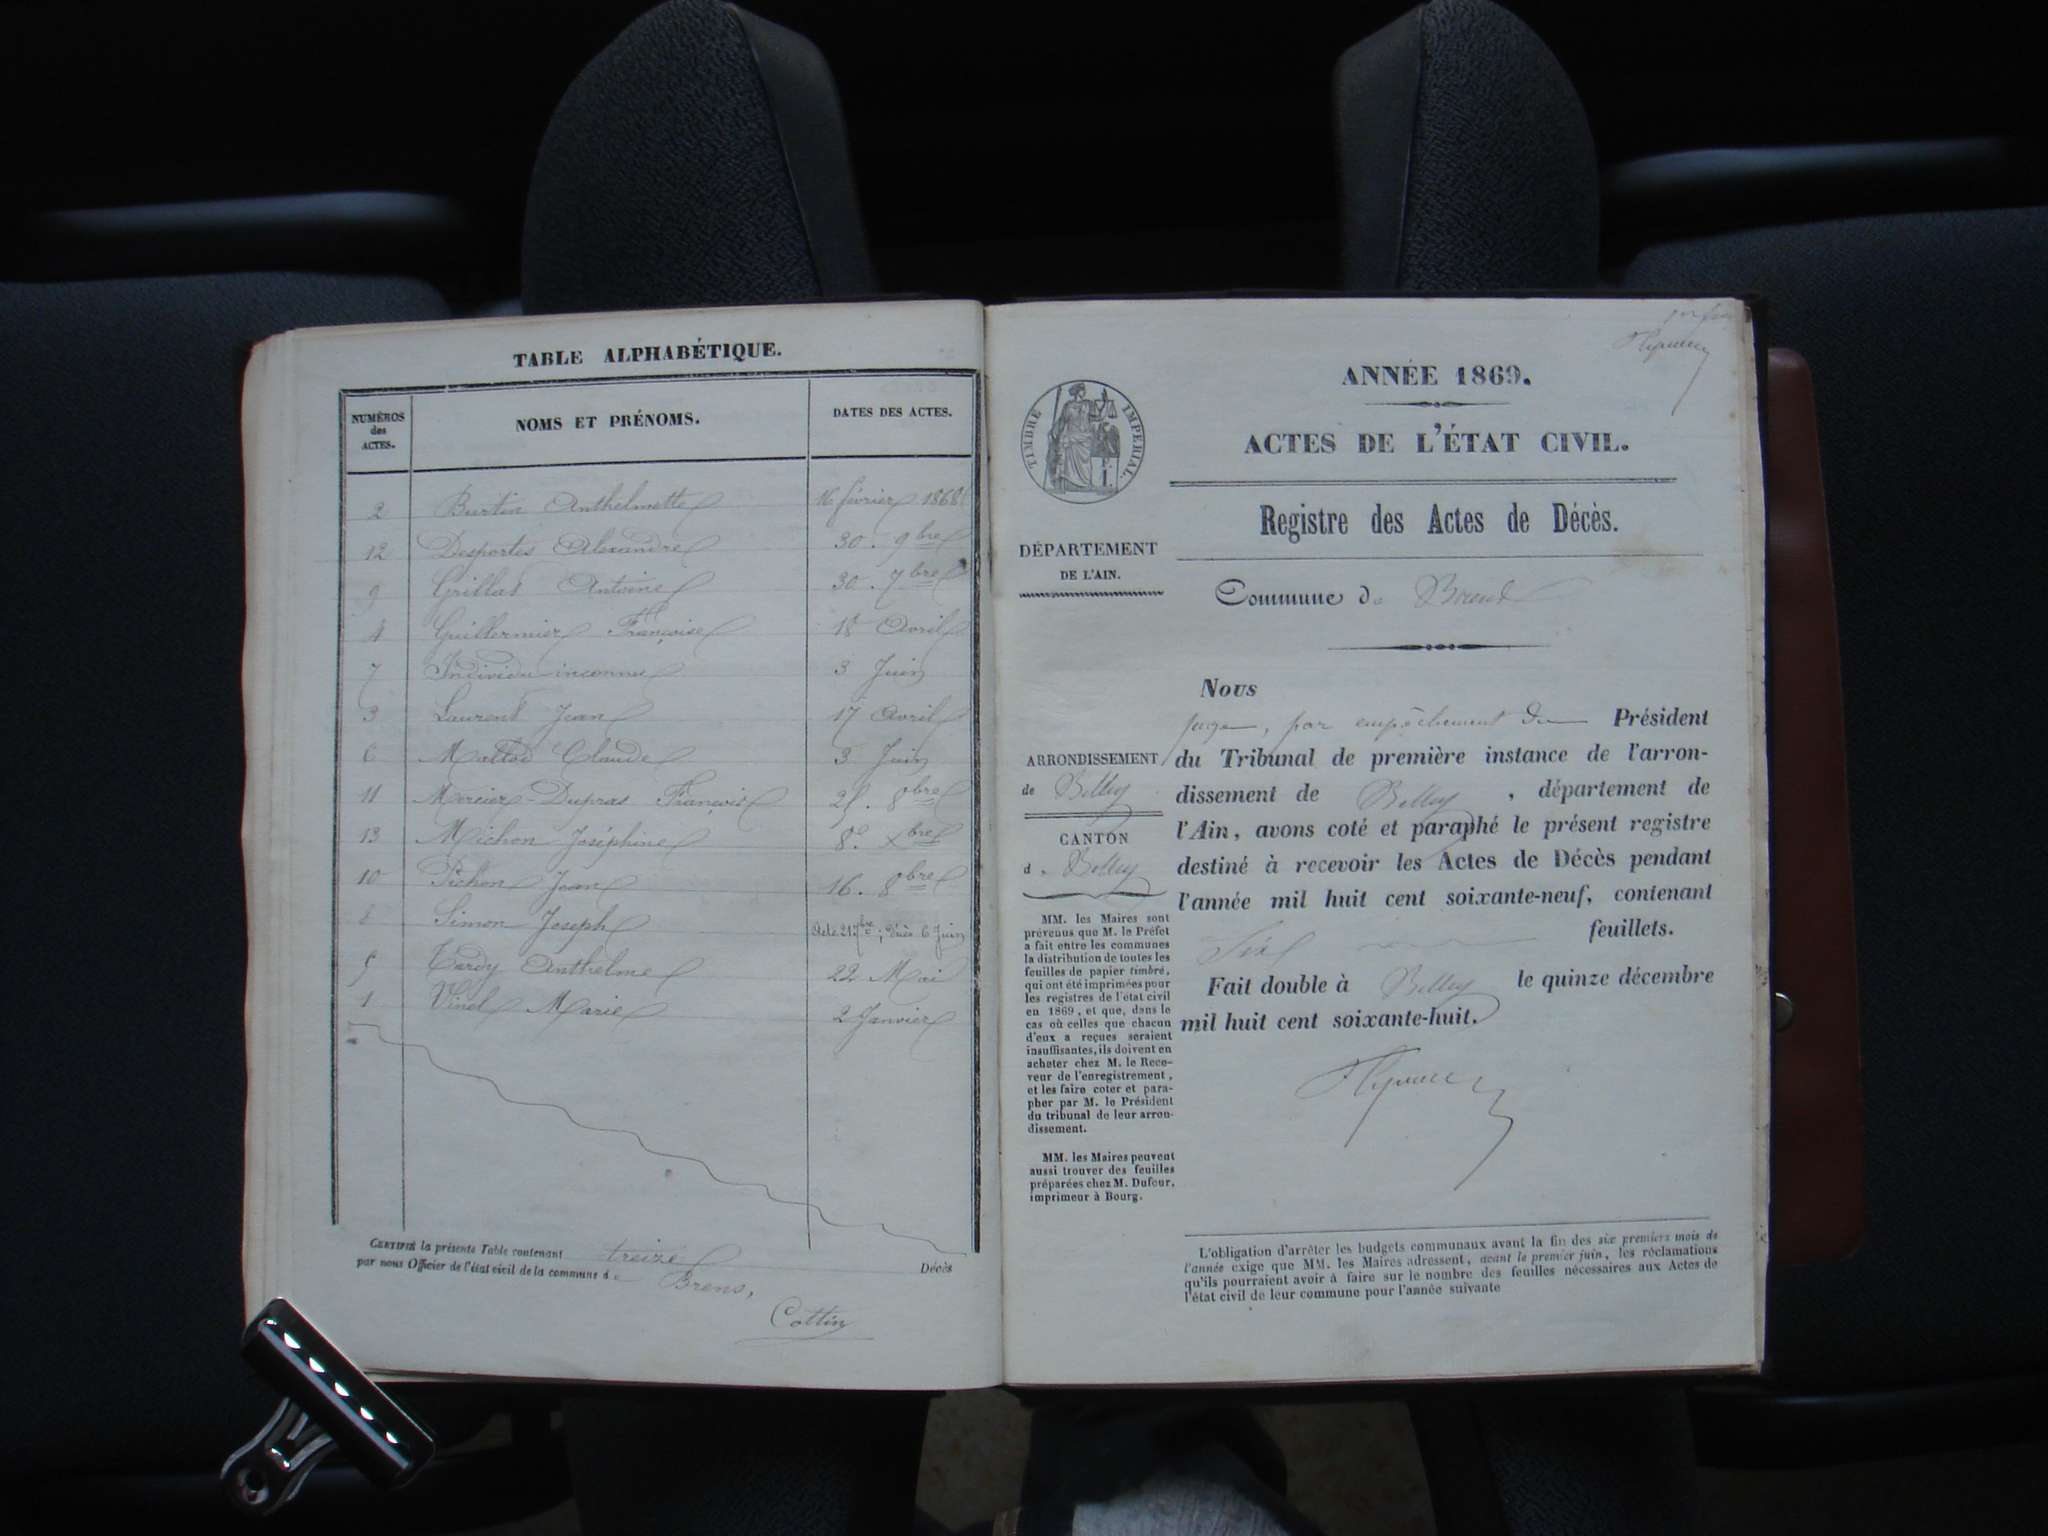 TABLE ALPHABÉTIQUE.
NUMÉROS des ACTES.
NOMS ET PRÉNOMS.
DATES DES ACTES.
2 Burtin Anthelmette 16 février 1868
12 Desportes Alexandre 30. 9bre
9 Grillat Antoine 30. 7bre
4 Guillermier Françoise 18 Avril
7 Individu inconnu 3 Juin
3 Laurent Jean 17 Avril
6 Mattod Claude 3 Juin
11 Mercier-Dupras François 25. 8bre
13 Michon Joséphine 8. Xbre
10 Pichon Jean 16. 8bre
8 Simon Joseph Acte 21 7bre; Décès 6 Juin
5 Tardy Anthelme 22 Mai
1 Vinel Marie 2 Janvier
CERTIFIÉ la présente Table contenant treize Décès
par nous Officier de l'état civil de la commune de Brens,
Cottin
ANNÉE 1869.
TIMBRE IMPERIAL.
ACTES DE L'ÉTAT CIVIL.
Registre des Actes de Décès.
DÉPARTEMENT
DE L'AIN.
Commune de Brens
Nous
juge, par empêchement du Président
du Tribunal de première instance de l'arron-
dissement de Belley, département de
l'Ain, avons coté et paraphé le présent registre
destiné à recevoir les Actes de Décès pendant
l'année mil huit cent soixante-neuf, contenant
feuillets.
Fait double à Belley le quinze décembre
mil huit cent soixante-huit.
ARRONDISSEMENT
de Belley
CANTON
de Belley
MM. les Maires sont
prévenus que M. le Préfet
a fait entre les communes
la distribution de toutes les
feuilles de papier timbré,
qui ont été imprimées pour
les registres de l'état civil
en 1869, et que, dans le
cas où celles que chacun
d'eux a reçues seraient
insuffisantes, ils doivent en
acheter chez M. le Rece-
veur de l'enregistrement,
et les faire coter et para-
pher par M. le Président
du tribunal de leur arron-
dissement.
MM. les Maires peuvent
aussi trouver des feuilles
préparées chez M. Dufour,
imprimeur à Bourg.
L'obligation d'arrêter les budgets communaux avant la fin des six premiers mois de
l'année exige que MM. les Maires adressent, avant le premier juin, les réclamations
qu'ils pourraient avoir à faire sur le nombre des feuilles nécessaires aux Actes de
l'état civil de leur commune pour l'année suivante